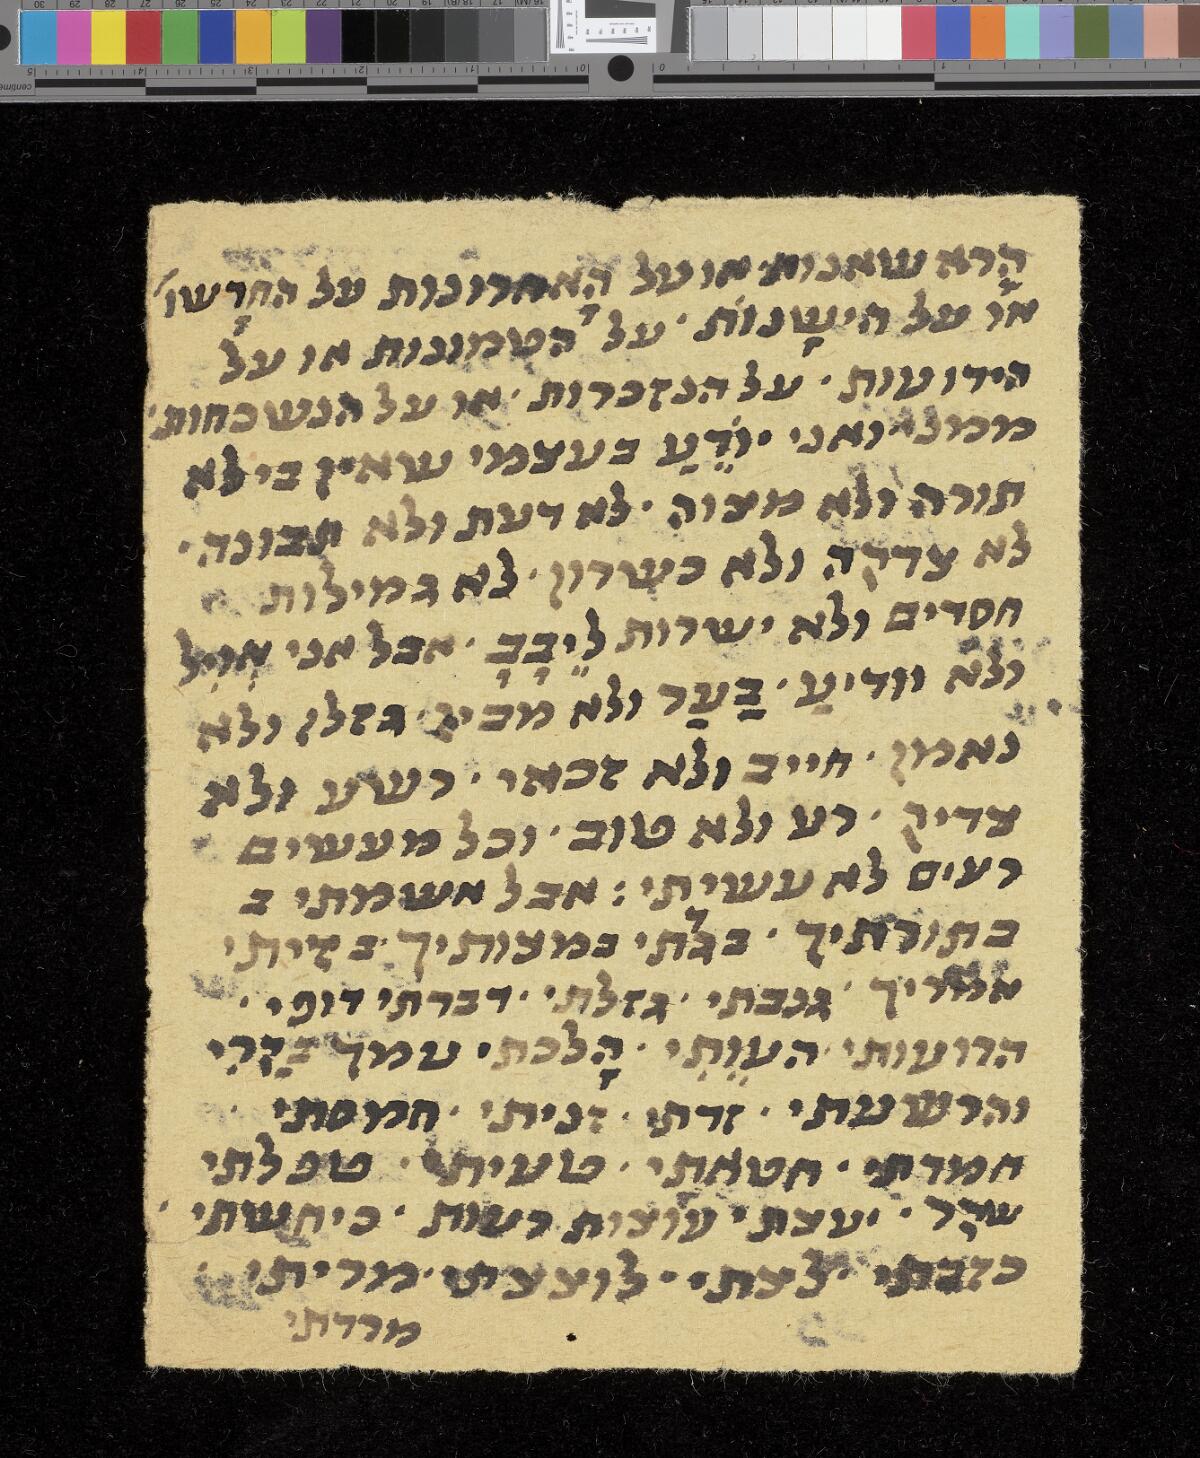 הָרא שאנות· או על האחרונות על החדָשו׳
או על הישָנות · על הטמונות או על
הידועות · על הנזכרות · או על הנשכחות·
ואני יוֹדֵעַ בעצמי שאין בי לא
תורה ולא מצוה · לא דעת ולא תבונה ·
לא צדקה ולא כשרון · לא גמילות
חסדים ולא ישרות לֵיבָב · אבל אני אויל
ולא יודיעַ · בַּעַר ולא מבין · גזלן ולא
נאמן · חייב ולא זכאי · רשע ולא
צדיק · רע ולא טוב · וכל מעשים
רעים לא עשיתי : אבל אשמתי ב
בתורתיך · בגדתי במצותיך · בזיתי
אמריך · גנבתי · גזלתי · דברתי דופי ·
הרועותי · העויתי · הָלכתי עמך בַקרִי
והרשעתי · זדתי · זניתי · חמסתי ·
חמדתי · חטאתי · טעיתי · טפלתי
שקר · יעצתי עוצות רעות · כיחשתי ·
כזבתי · לצתי · לוצצתי · מריתי ·
מרדתי